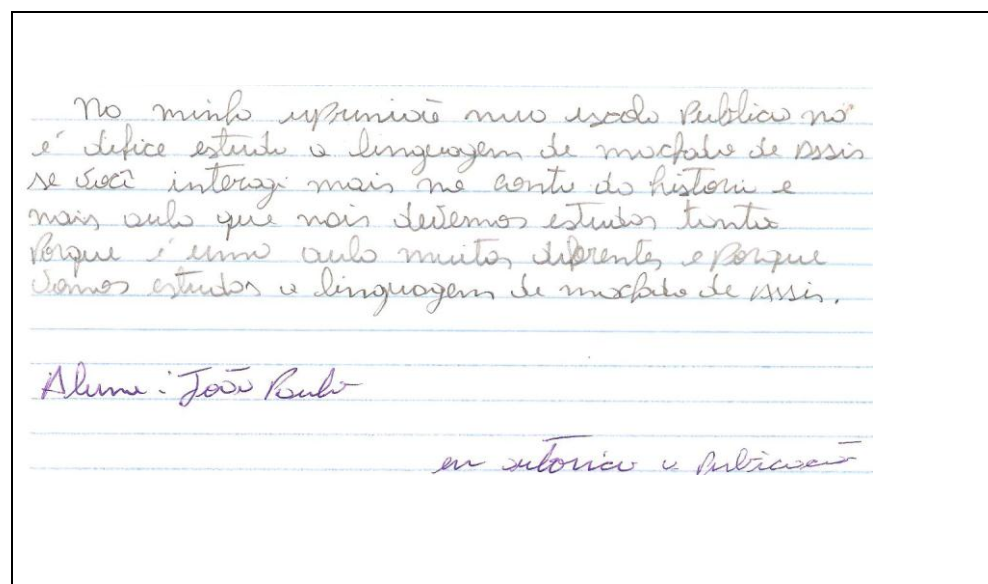 No minha esperiniciê numa escola Publica nó
é defice estuda a linguagem de machado de Assis
se você interagi mais na conto da histori e
mais aula que mais devemos estudos tanta
Porque é uma aula muitos diferentes e porque
vamos estudos a linguagem de machado de Assis.
Aluno: João Paulo
eu autorico a Publicação